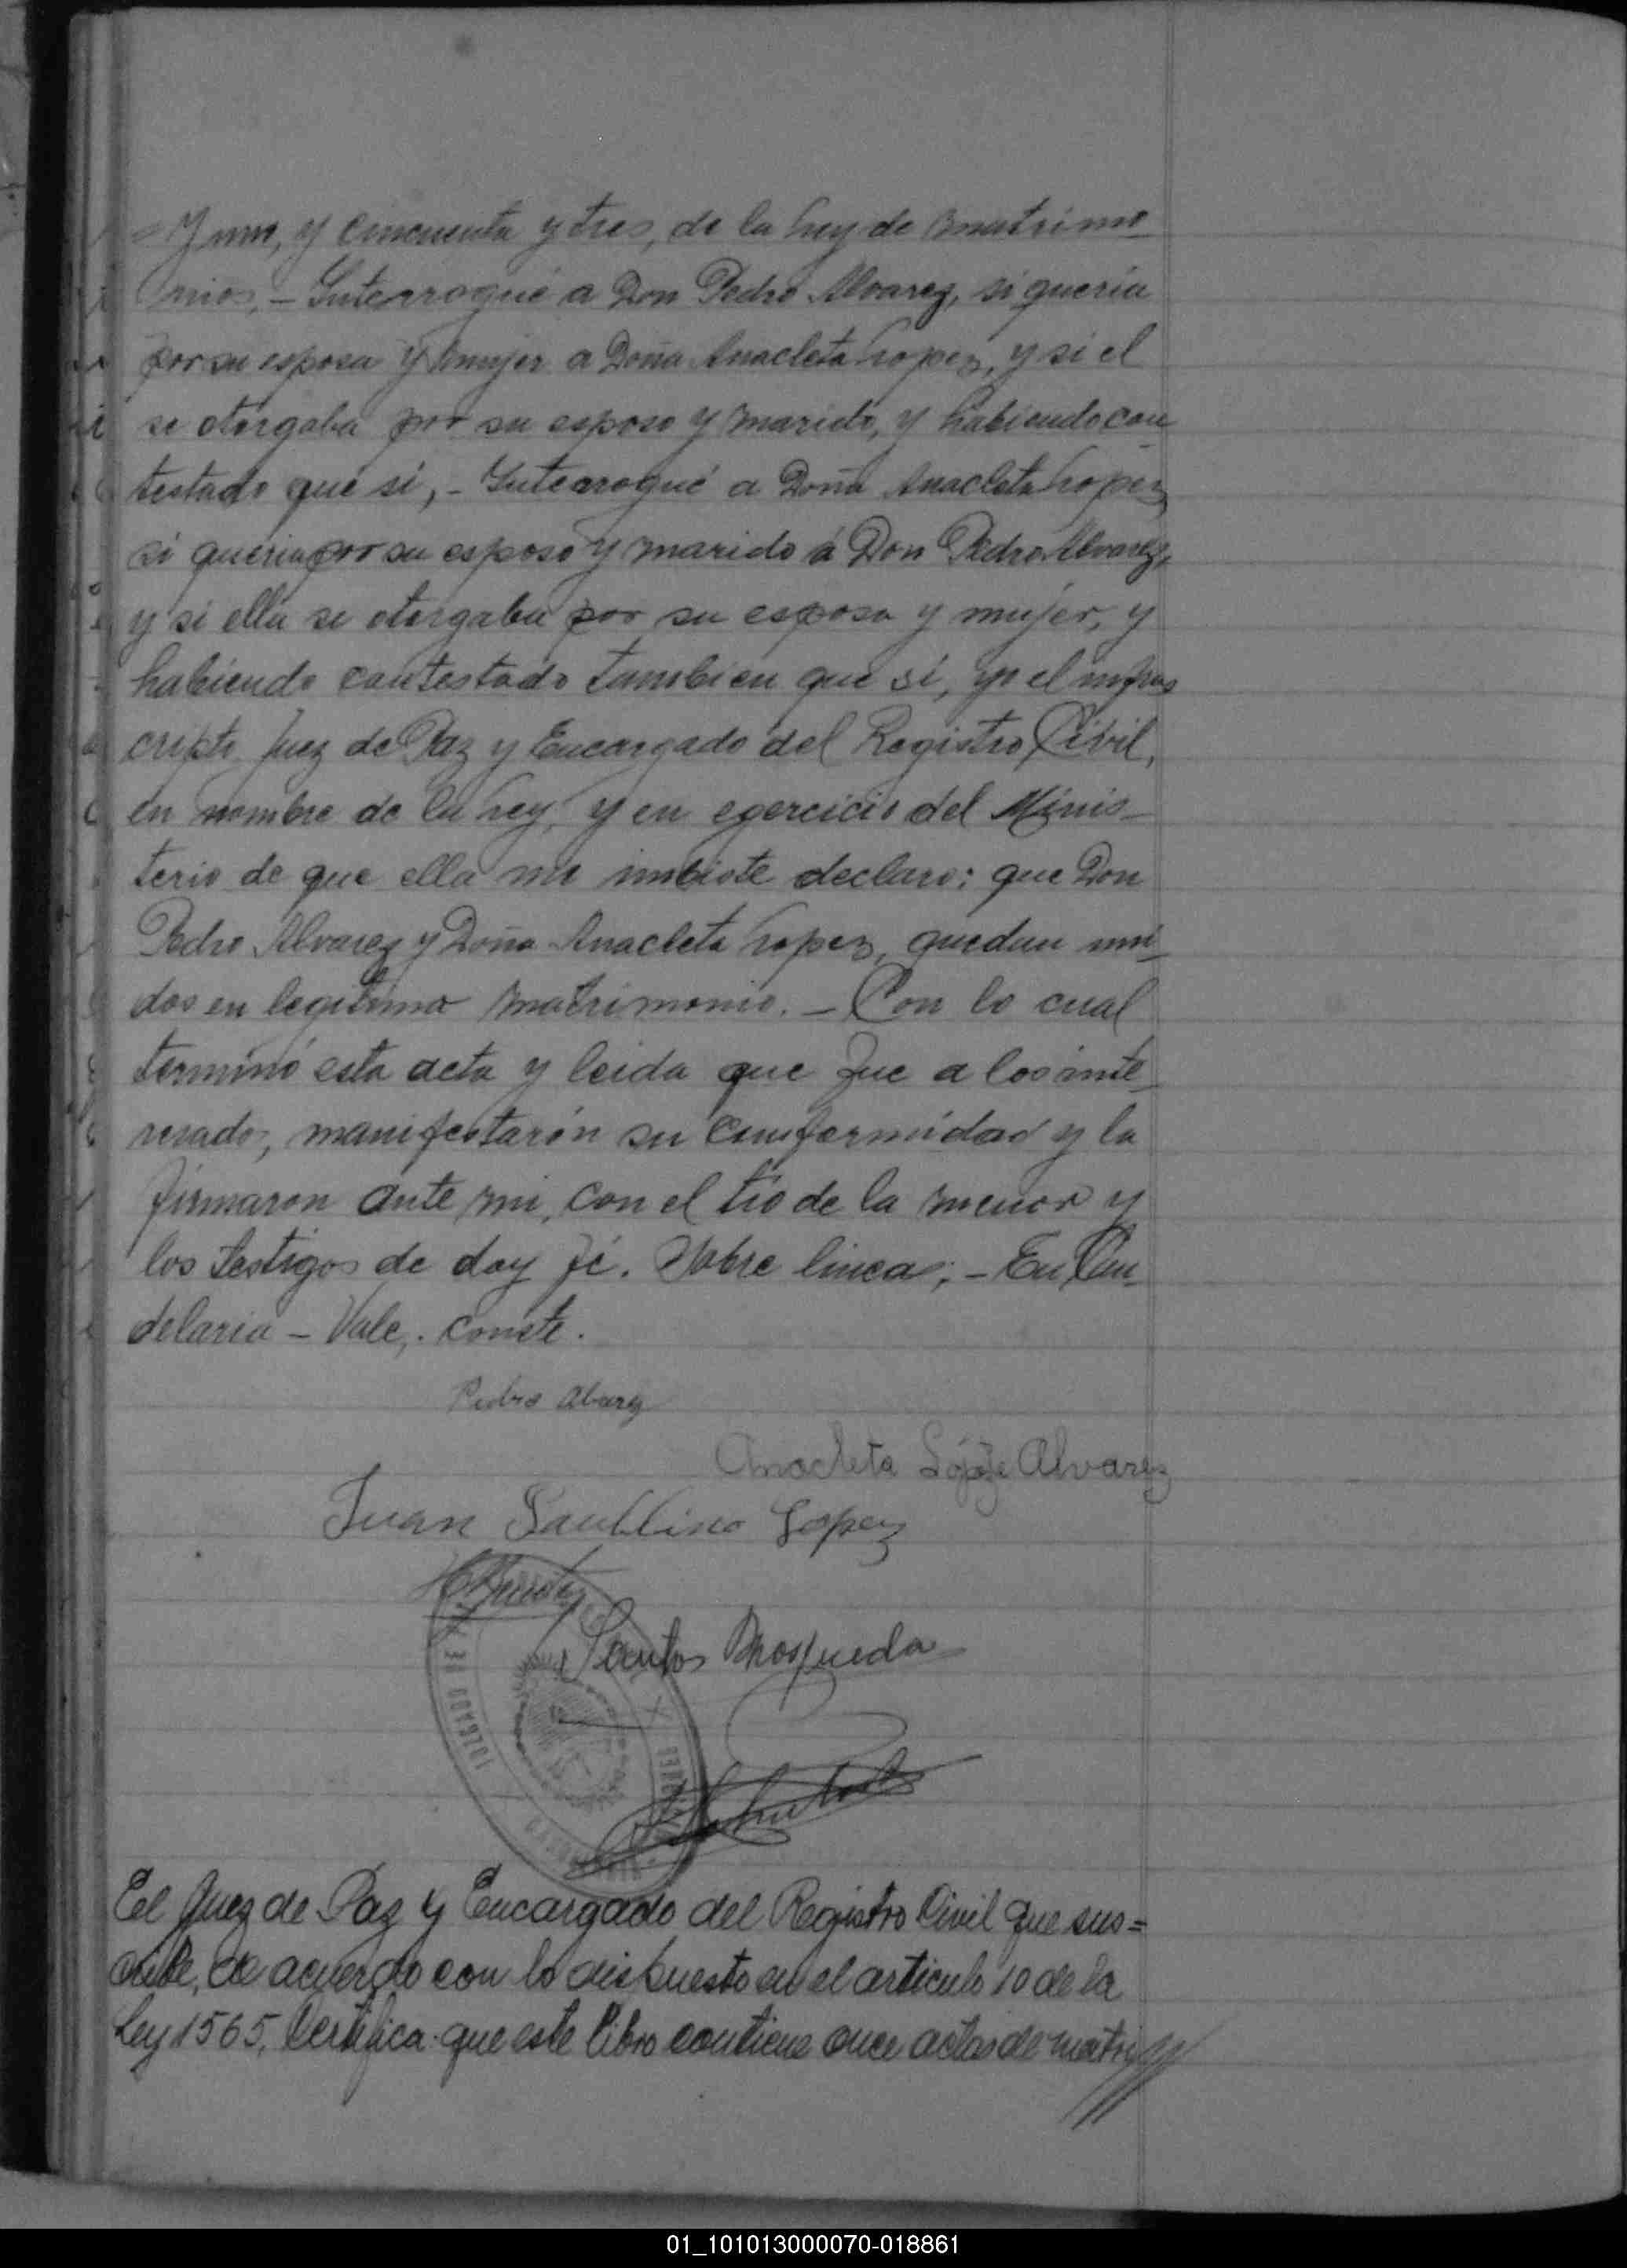 y uno, y cincuenta y tres, de la Ley de Matrimo
nios.- Interrogué a Don Pedro Alvarez, si quería
por su esposa y mujer a Doña Anacleta Lopez, y si el
se otorgaba por su esposo y marido, y habiendo con
testado que si,- Interrogué a Doña Anacleta Lopez
si queria por su esposo y marido á Don Pedro Alvarez,
y si ella se otorgaba por su esposa y mujer, y
habiendo contestado tambien que si, yo el infras
cripto Juez de Paz y Encargado del Registro Civil,
en nombre de la Ley, y en egercicio del Minis-
terio de que ella me imbiste declaro: que Don
Pedro Alvarez y Doña Anacleta Lopez, quedan uni-
dos en legitimo matrimonio.- Con lo cual
terminó esta acta y leida que fue a los inte-
resados, manifestarón su comformidad y la
firmaron ante mi, con el tio de la menor y
los testigos de doy fé. Sobre lineas;- En Can-
delaria - Vale,. conste.
Pedro Alvarez
Anacleta López de Alvarez
Juan Paublino Lopez
Santos Mosqueda
JUZGADO DE
El Juez de Paz y Encargado del Registro Civil que sus=
cribe, de acuerdo con lo dispuesto en el articulo 10 de la
Ley 1565, Certifica: que este libro contiene once actas de matri
01_101013000070-018861